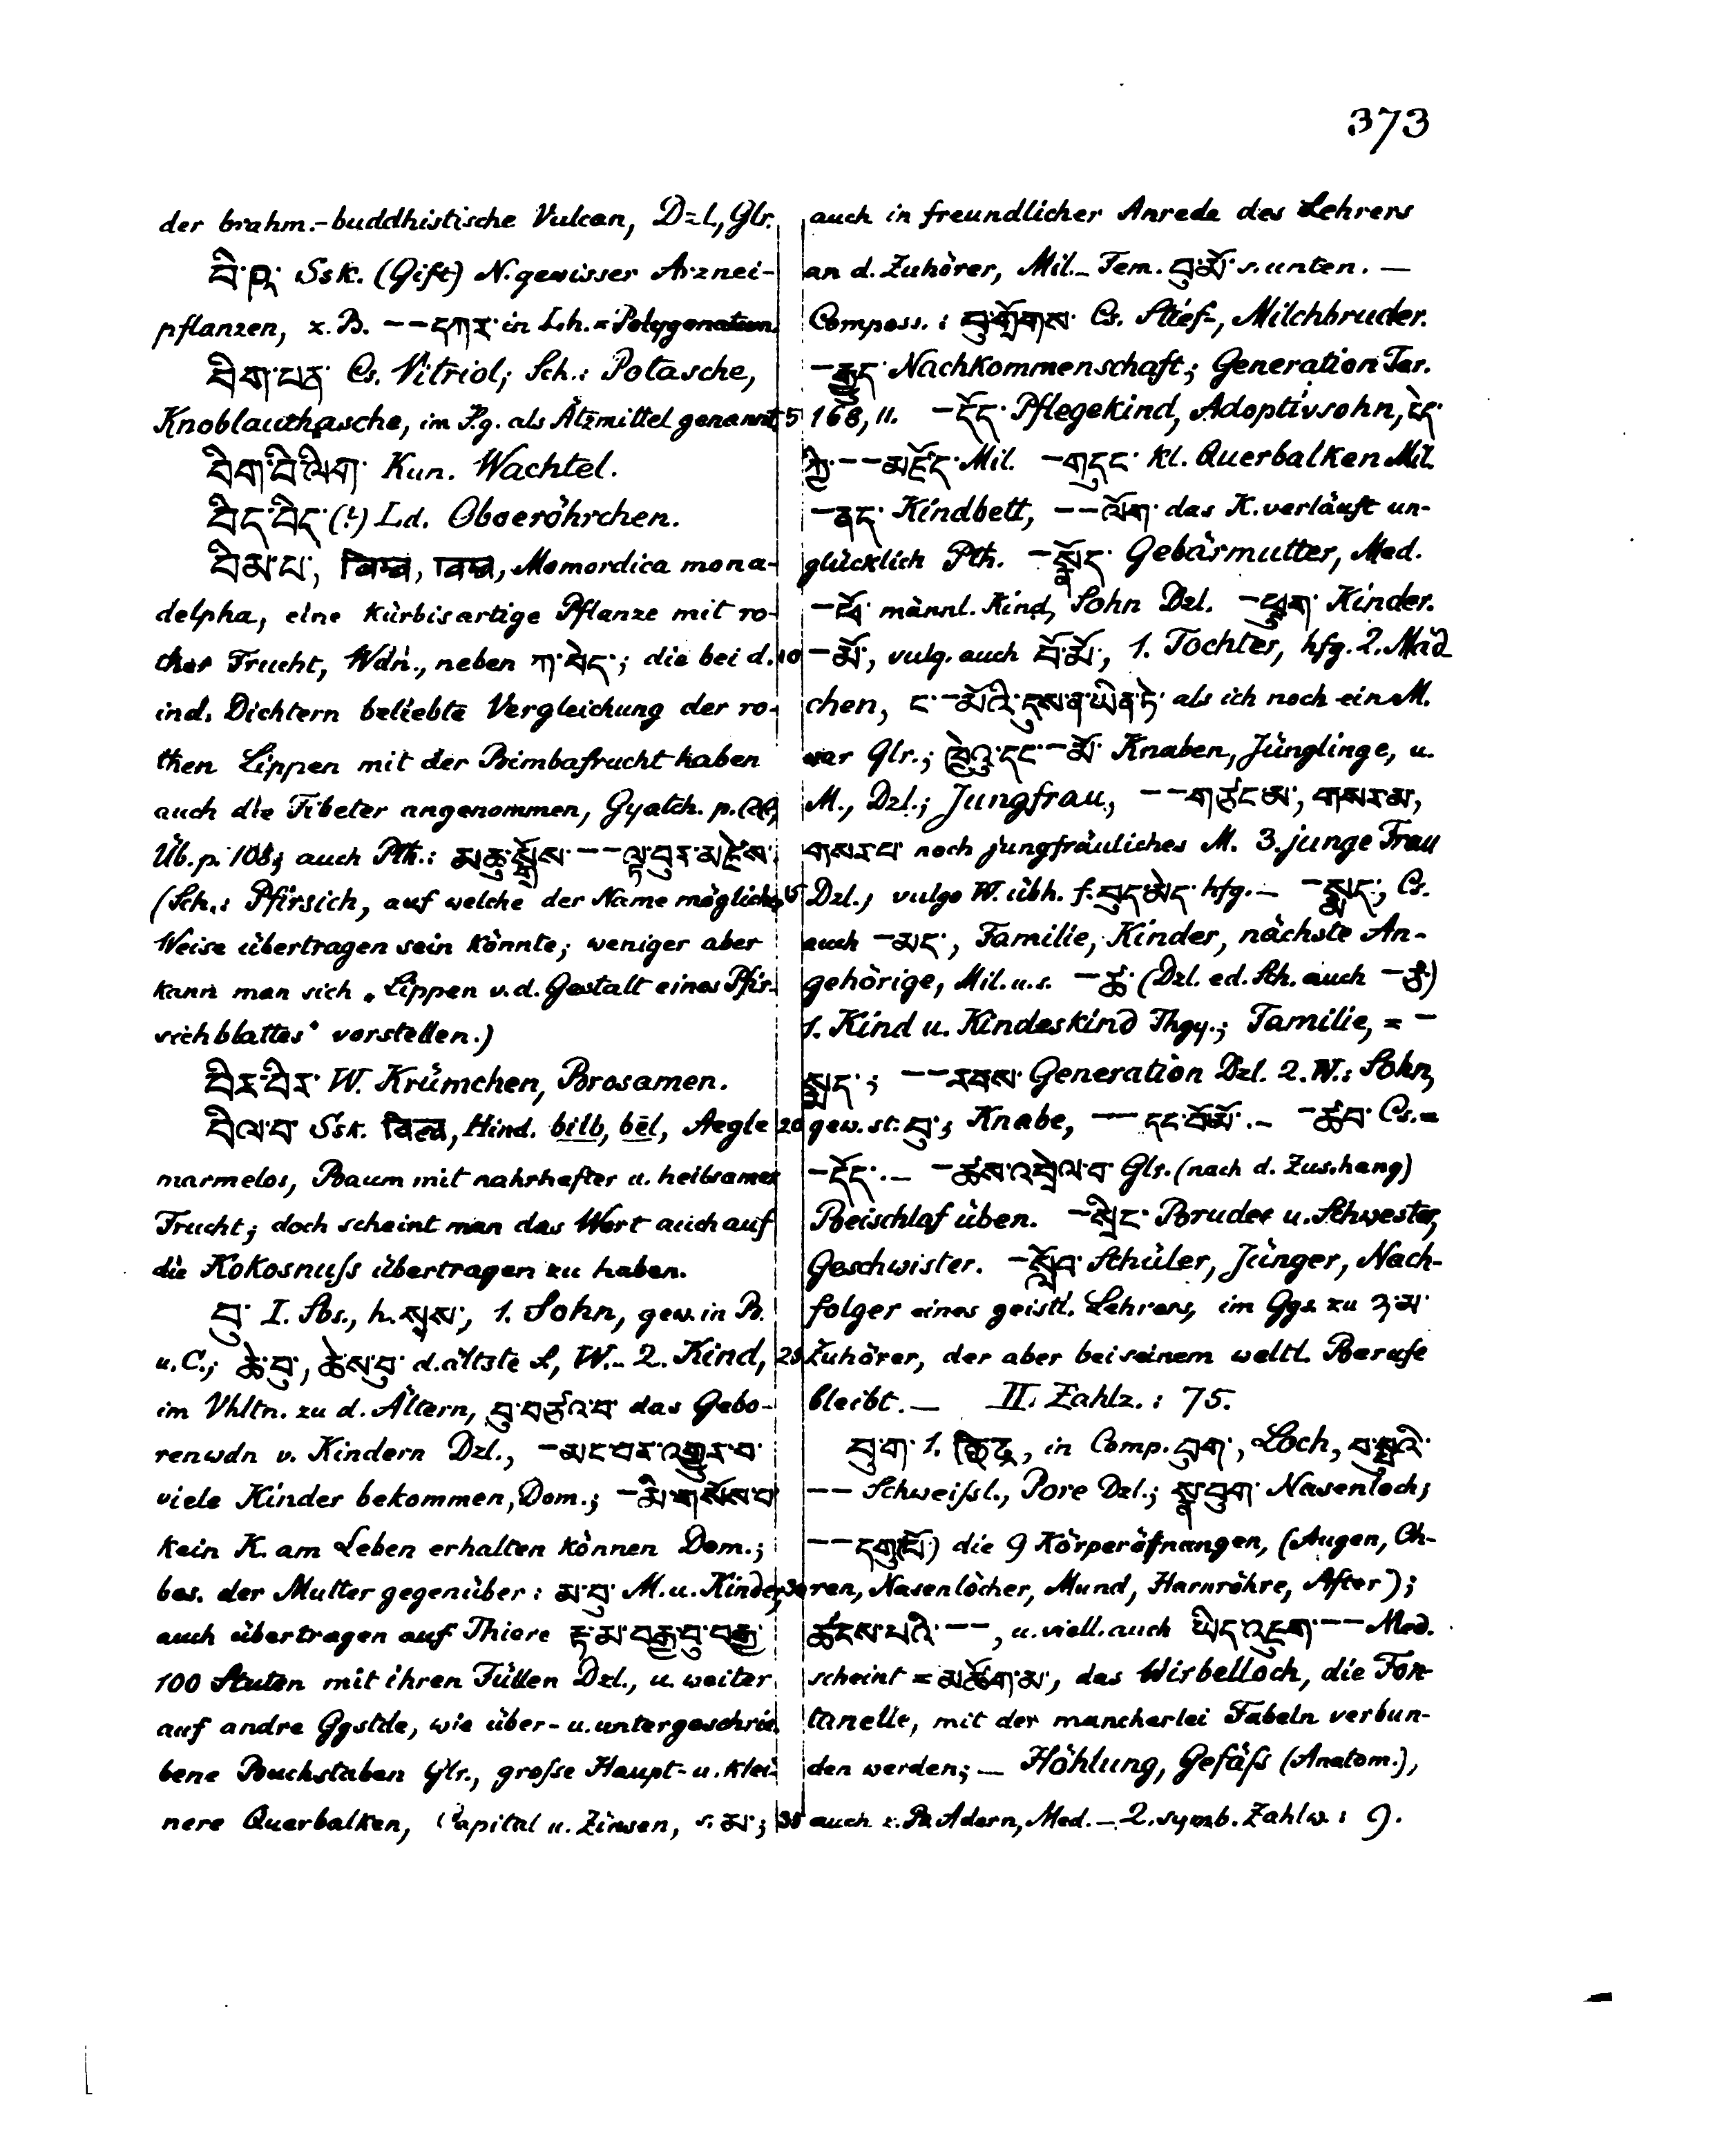 373
der brahm.-buddhistische Vulcan, Dzl, Glr.
བི་ཥ་ Ssk. (Gift) N. gewisser Arznei-
pflanzen, z. B. –– དཀར་ in Lh. = Polygonatum.
བིག་པན་ Cs. Vitriol; Sch.: Potasche,
Knoblauchasche, im Lg. als Ätzmittel genannt. 5
བིག་བི་ལིག་ Kun. Wachtel.
བིད་བིད་ (?) Ld. Oboeröhrchen.
བིམ་པ་, बिम्ब, Momordica mona-
delpha, eine kürbisartige Pflanze mit ro-
ther Frucht, Wdn̄., neben ཀ་བེད་; die bei d. 10
ind. Dichtern beliebte Vergleichung der ro-
then Lippen mit der Bimbafrucht haben
auch die Tibeter angenommen, Gyatch. p.
Üb. p. 108; auch Pth.: མཆུ་སྒྲོས་ –– ལྟ་བུར་མཛེས་
(Sch.: Pfirsich, auf welche der Name möglicher 15
Weise übertragen sein könnte; weniger aber
kann man sich „Lippen v. d. Gestalt eines Pfir-
sichblattes“ vorstellen.)
བིར་བིར་ W. Krümchen, Brosamen.
བིལ་བ་ Ssk. बिल्व, Hind. bilb, bēl, Aegle 20
marmelos, Baum mit nahrhafter u. heilsamer
Frucht; doch scheint man das Wort auch auf
die Kokosnuſs übertragen zu haben.
བུ་ I. Sbs., h. སྲས་, 1. Sohn, gew. in B.
u. C.; ཆེ་བུ་, ཆེས་བུ་ d. älteste S, W. – 2. Kind, 25
im Vhltn. zu d. Ältern, བུ་བཙའ་བ་ das Gebo-
renwdn v. Kindern Dzl., – མང་བར་འགྱུར་བ་
viele Kinder bekommen, Dom.; – མི་གསོས་བ་
kein K. am Leben erhalten können Dom.;
bes. der Mutter gegenüber: མ་བུ་ M. u. Kinder, 30
auch übertragen auf Thiere རྟ་མ་བརྒྱ་བུ་བརྒྱ་
100 Stuten mit ihren Füllen Dzl., u. weiter
auf andre Ggstde, wie über- u. untergeschrie-
bene Buchstaben Glr., groſse Haupt- u. klei-
nere Querbalken, Capital u. Zinsen, s. མ་; 35
auch in freundlicher Anrede des Lehrers
an d. Zuhörer, Mil. – Fem. བུ་མོ་ s. unten. —
Composs.: བུ་གྲོགས་ Cs. Stief-, Milchbruder.
– རྒྱུད་ Nachkommenschaft; Generation Tar.
168, 11. – ངོད་ Pflegekind, Adoptivsohn, ངེད་
ཀྱི་ –– མཛོད་ Mil. – གདུང་ kl. Querbalken Mil.
– ནད་ Kindbett, –– ལོག་ das K. verläuft un-
glücklich Pth. – སྣོད་ Gebärmutter, Med.
– པོ་ männl. Kind, Sohn Dzl. – ཕྲུག་ Kinder.
– མོ་, vulg. auch བོ་མོ་, 1. Tochter, hfg. 2. Mäd
chen, ང་ – མོའི་དུས་ན་ཡིན་ཏེ་ als ich noch ein M.
war Glr.; ཁྱེའུ་དང་ – མོ་ Knaben, Jünglinge, u.
M., Dzl.; Jungfrau, –– གཙང་མ་, གསར་མ་,
གསར་པ་ noch jungfräuliches M. 3. junge Frau
Dzl.; vulgo W. übh. f. བུད་མེད་ hfg. – – སྨད་, Cs.
auch – མད་, Familie, Kinder, nächste An-
gehörige, Mil. u. s. – ཚ་ (Dzl. ed. Sch. auch – ཙ་)
1. Kind u. Kindeskind Thgy.; Familie, = –
སྨད་; –– རབས་ Generation Dzl. 2. W.: Sohn,
gew. st. བུ་; Knabe, –– དང་བོ་མོ་. – – ཚབ་ Cs. =
– ངོད་. – – ཚས་འབྲེལ་བ་ Glr. (nach d. Zus.hang)
Beischlaf üben. – སྲིང་ Bruder u. Schwester,
Geschwister. – སློབ་ Schüler, Jünger, Nach-
folger eines geistl. Lehrers, im Ggs. zu ཉ་མ་
Zuhörer, der aber bei seinem weltl. Berufe
bleibt. — II. Zahlz.: 75.
བུ་ག་ 1. छिद्र, in Comp. བུག་, Loch, བ་སྤུའི་
–– Schweiſsl., Pore Dzl.; སྣ་བུག་ Nasenloch;
–– དགུ(པོ་) die 9 Körperöfnungen, (Augen, Oh-
ren, Nasenlöcher, Mund, Harnröhre, After);
ཚངས་པའི་ ––, u. viell. auch ཡིད་འཇུག་ –– Med.
scheint = མཚོག་མ་, das Wirbelloch, die Fon-
tanelle, mit der mancherlei Fabeln verbun-
den werden; – Höhlung, Gefäſs (Anatom.),
auch z. B. Adern, Med. – 2. symb. Zahlw.: 9.